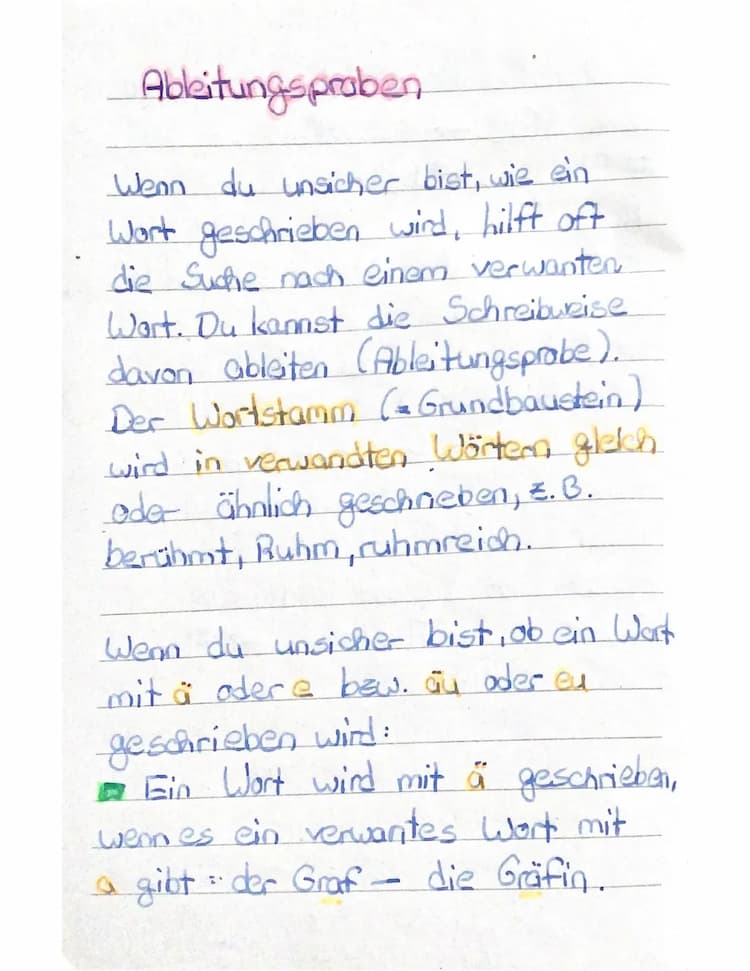 Ableitungsproben
Wenn du unsicher bist, wie ein
Wort geschrieben wird, hilft oft
die Suche nach einem verwanten
Wort. Du kannst die Schreibweise
davon ableiten (Ableitungsprobe).
Der Wortstamm (= Grundbaustein)
wird in verwandten Wörtern gleich
oder ähnlich geschrieben, z. B.
berühmt, Ruhm, ruhmreich.
Wenn du unsicher bist, ob ein Wort
mit ä oder e bzw. äu oder eu
geschrieben wird:
Ein Wort wird mit ä geschrieben,
wenn es ein verwantes Wort mit
a gibt: der Graf – die Gräfin.